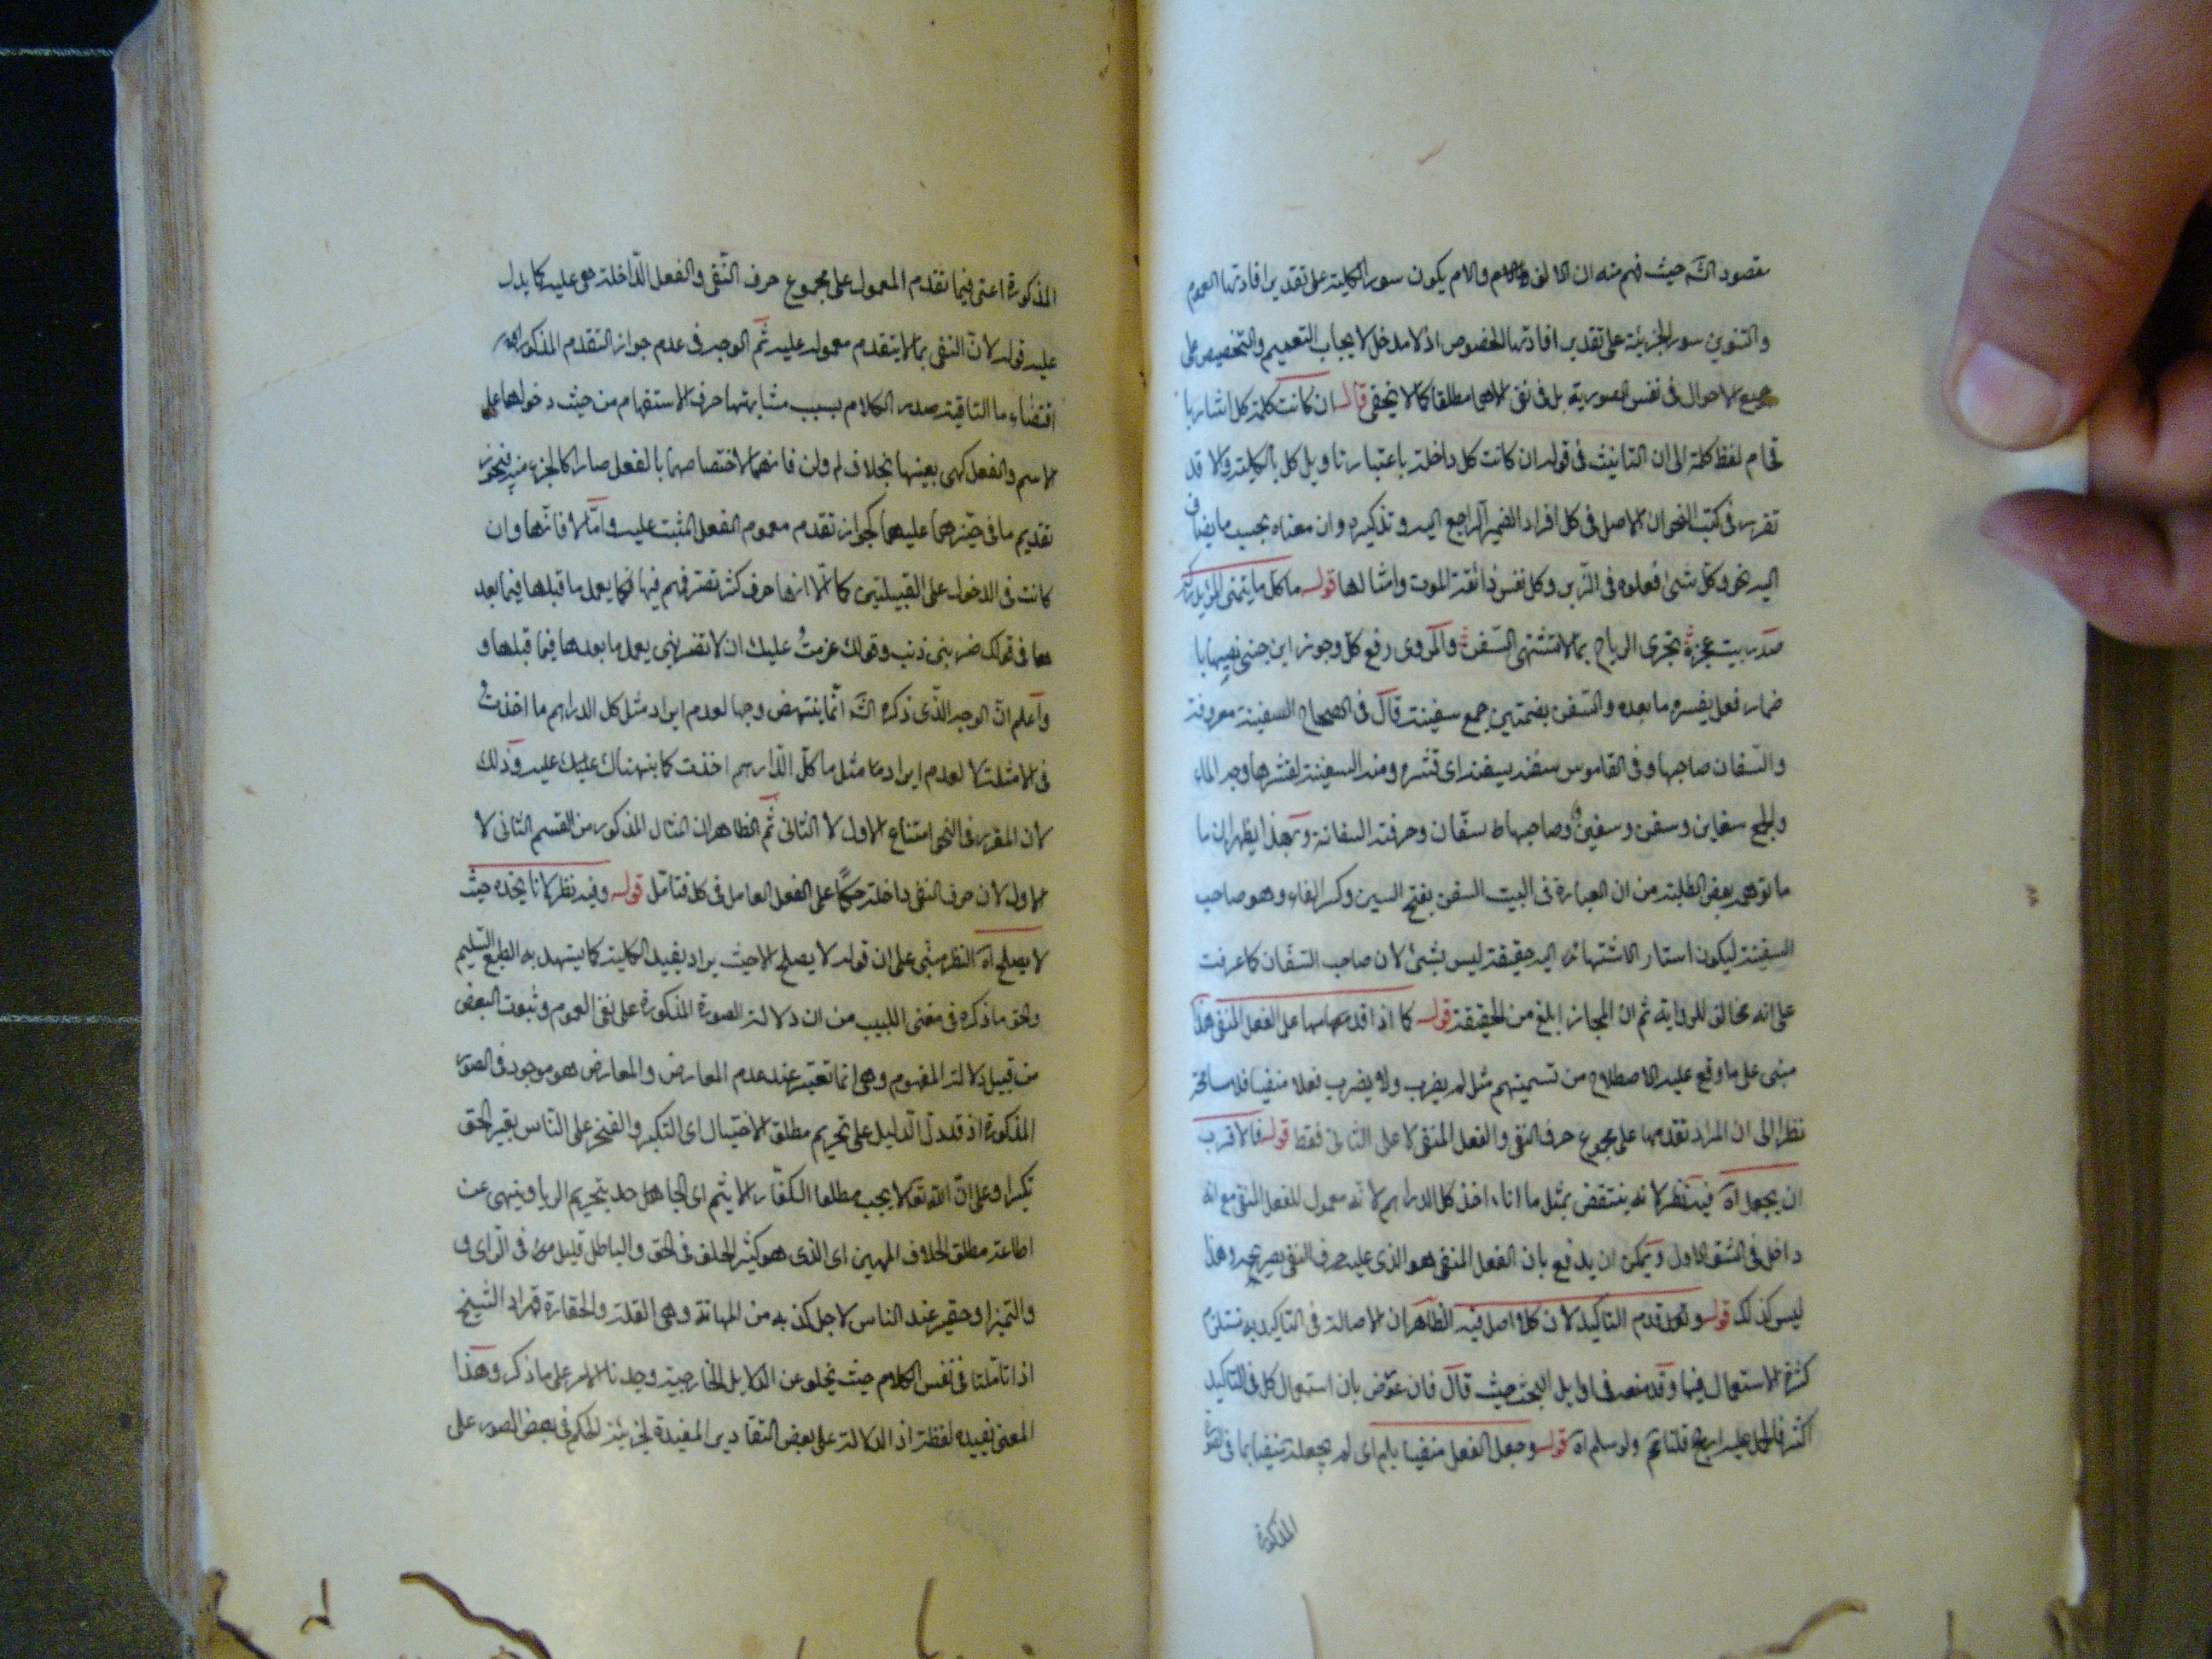 مقصود الشـ حيث فهم منه ان الالف واللام يكون سور الكلية على تقدير افادتها العموم
والتنوين سور الجزئية على تقدير افادتها الخصوص اذ لا مدخل لايجاب التعميم والتخصيص على
جميع الاحوال في نفس الصورية بل في نفى الاهى مطلقا كما لا يخفى قال ان كانت كلمة كل اشار با
قحام لفظ كلمة الى ان التانيث في قوله ان كانت كل داخلة باعتبار تاويل كل بالكلية والا قد
تقرر في كتب النحو ان الاصل في كل افراد الضمير الراجع اليه وتذكيره وان معناه بحسب ما يضاف
اليه نحو وكل شئ فعلوه في الزبر وكل نفس ذائقة الموت وامثالها قوله ما كل ما يتمنى المرء يدركه
صدر بيت عجزه تجرى الرياح بما لا تشتهى السفن والمروى رفع كل وجوز ابن جنى نصبها با
ضمار فعل يفسره ما بعده والسفن بضمتين جمع سفينة قال في الصحاح السفينة معروفة
والسفان صاحبها وفى القاموس سفنه يسفنه اى قشره ومنه السفينة لقشرها وجه الماء
والجمع سفاين وسفن وسفين وصاحبها سفان وحرفته السفانة وبهذا يظهر ان ما
ما توهم بعض الطلبة من ان العبارة في البيت السفن بفتح السين وكسر الفاء وهو صاحب
السفينة ليكون اسناد الاشتهاء اليه حقيقة ليس بشئ لان صاحب السفان كما عرفت
على انه مخالف للرواية ثم ان المجاز ابلغ من الحقيقة قوله كما اذا قدمها على الفعل المنفى هذا
مبنى على ما وقع عليه الاصطلاح من تسميتهم مثل لم يضرب ولا يضرب فعلا منفيا فلا مسامحة
نظرا الى ان المراد تقدمها على مجموع حرف النفى والفعل المنفى لا على الثانى فقط قوله فالاقرب
ان يجعل آه فيه نظر لانه ينتقض بمثل ما انا اخذ كل الدراهم لانه معمول للفعل المنفى مع انه
داخل في الشق الاول ويمكن ان يدفع بان الفعل المنفى هو الذى عليه حرف النفى بصريحه وهذا
ليس كذلك قوله وقدم التاكيد لان كلا اصل فيه الظاهر ان الاصالة في التاكيد يستلزم
كثرة الاستعمال فيها وقد منعه في اوايل البحث حيث قال فان عوض بان استعمال كل في التاكيد
اكثر فالحمل عليه ارجح قلنا ثم ولو سلم آه قوله وجعل الفعل منفيا بلم اى لم يجعله منفيا بما في الصورة
المذكورة
المذكورة اعنى فيما تقدم المعمول على مجموع حرف النفى والفعل الداخلة هى عليه كما يدل
عليه قوله لان النفى بما لا يتقدم معموله عليه ثم الوجه في عدم جواز التقدم المذكور
اقتضاء ما النافية صدر الكلام بسبب مشابهتها حرف الاستفهام من حيث دخولها على
الاسم والفعل كهى بعينها بخلاف لم ولن فانهما لاختصاصهما بالفعل صارا كالجزء منه فيجوز
تقديم ما في حيزهما عليهما كجواز تقدم معموم الفعل المثبت عليه واما لا فانها وان
كانت في الدخول على القبيلتين كما الا انها حرف كثر تصرفهم فيها فكما يعمل ما قبلها فيما بعد
ها في قولك ضربنى ذنب وقولك عزمت عليك ان لا تضربنى يعمل ما بعدها فيما قبلها و
واعلم ان الوجه الذى ذكره الشـ انما ينتهض وجها لعدم ايراد مثل كل الدراهم ما اخذت
في الامثلة لا لعدم ايراد ما مثل ما كل الدراهم اخذت كما نبهناك عليه وذلك
لان المقرر في النحو امتناع الاول لا الثانى ثم الظاهر ان المثال المذكور من القسم الثانى لا
الاول لان حرف النفى داخلة حكما على الفعل العامل في كل فتامل قوله وفيه نظر لانا نجده حيث
لا يصلح آه النظر مبنى على ان قوله لا يصلح الا حيث يراد يفيد الكلية كما يشهد به الطبع السليم
والحق ما ذكره في مغنى اللبيب من ان دلالة الصورة المذكورة على نفى العموم وثبوت البعض
من قبيل دلالة المفهوم وهى انما تعتبر عند عدم المعارض والمعارض هو موجود في الصور
المذكورة اذ قد دل الدليل على تحريم مطلق الاختيال اى التكبر والفخر على الناس بغير الحق
تكبرا وعلى ان الله تعالى لا يحب مطلقا الكفار الاثيم اى الجاهل حد بتحريم الربا وينهى عن
اطاعة مطلق الحلاف المهين اى الذى هو كثير الحلف في الحق والباطل قليل في الراى و
والتميز او حقير عند الناس لاجل كذبه من المهانة وهى القلة والحقارة فمراد الشيخ
اذا تاملنا في نفس الكلام حيث يخلو عن الدلايل الخارجية وجدنا الامر على ما ذكر وهذا
المعنى يفيده لفظة اذ الدلالة على بعض التقادير المفيدة لجزئية الحكم في بعض الصور على